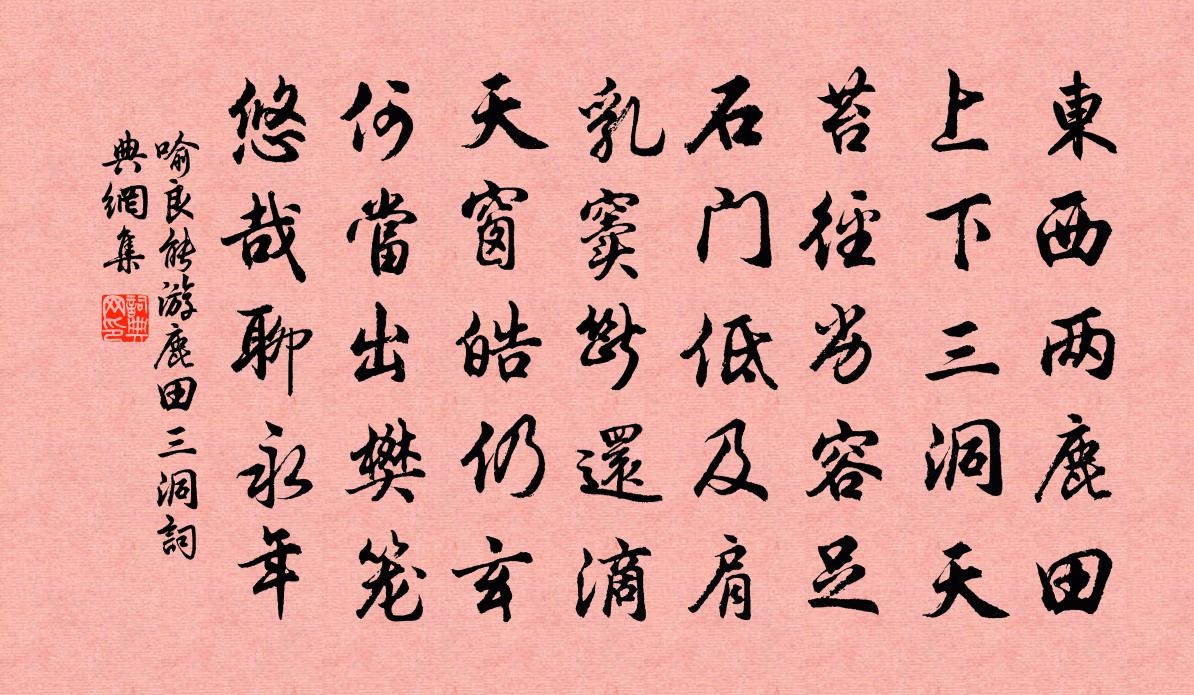 東西两鹿田
上下三洞天
苔徑劣容足
石门低及肩
乳竇斷還滴
天窗皓仍玄
何當出樊笼
悠哉聊永年
喻良能游鹿田三洞詞
典網集
詞典
网印